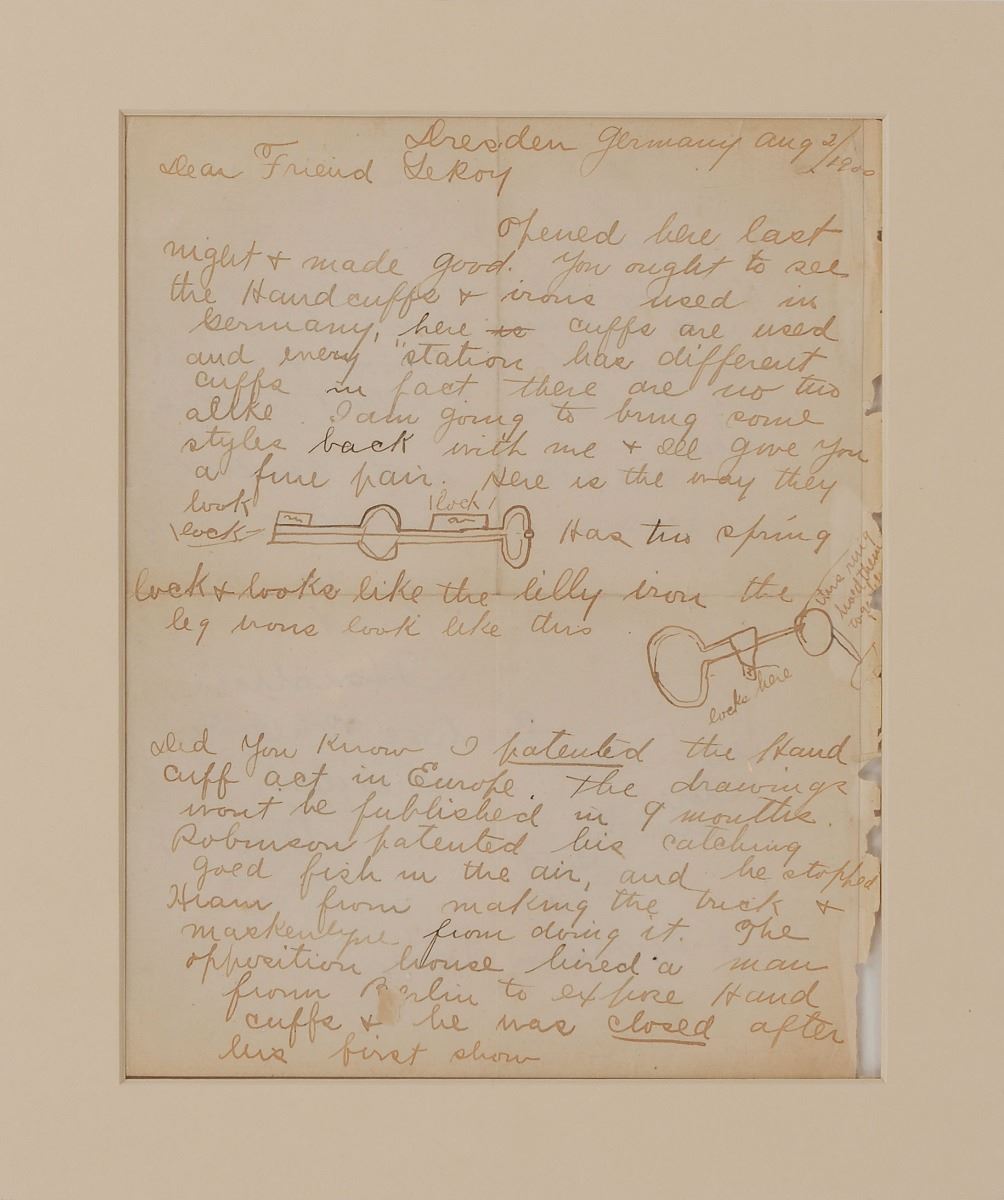 Dresden Germany Aug 2/1900
Dear Friend LeRoy
opened here last
night & made good. You ought to see
the Handcuffs & irons used in
Germany, here is cuffs are used
and every "station has different
cuffs in fact there are no two
alike I am going to bring some
styles back with me & Ill give You
a fine pair. Here is the way they
look
lock
lock
Has two spring
lock & looks like the lilly iron the
leg irons look like this
this ring
locks here
Did You Know I patented the Hand
cuff act in Europe. The drawings
wont be published in 9 months.
Robinson patented his catching
goed fish in the air, and he stopped
from making the trick &
maskenlyne from doing it. The
opposition house hired a man
from Berlin to expose Hand
cuffs & he was closed after
his first show